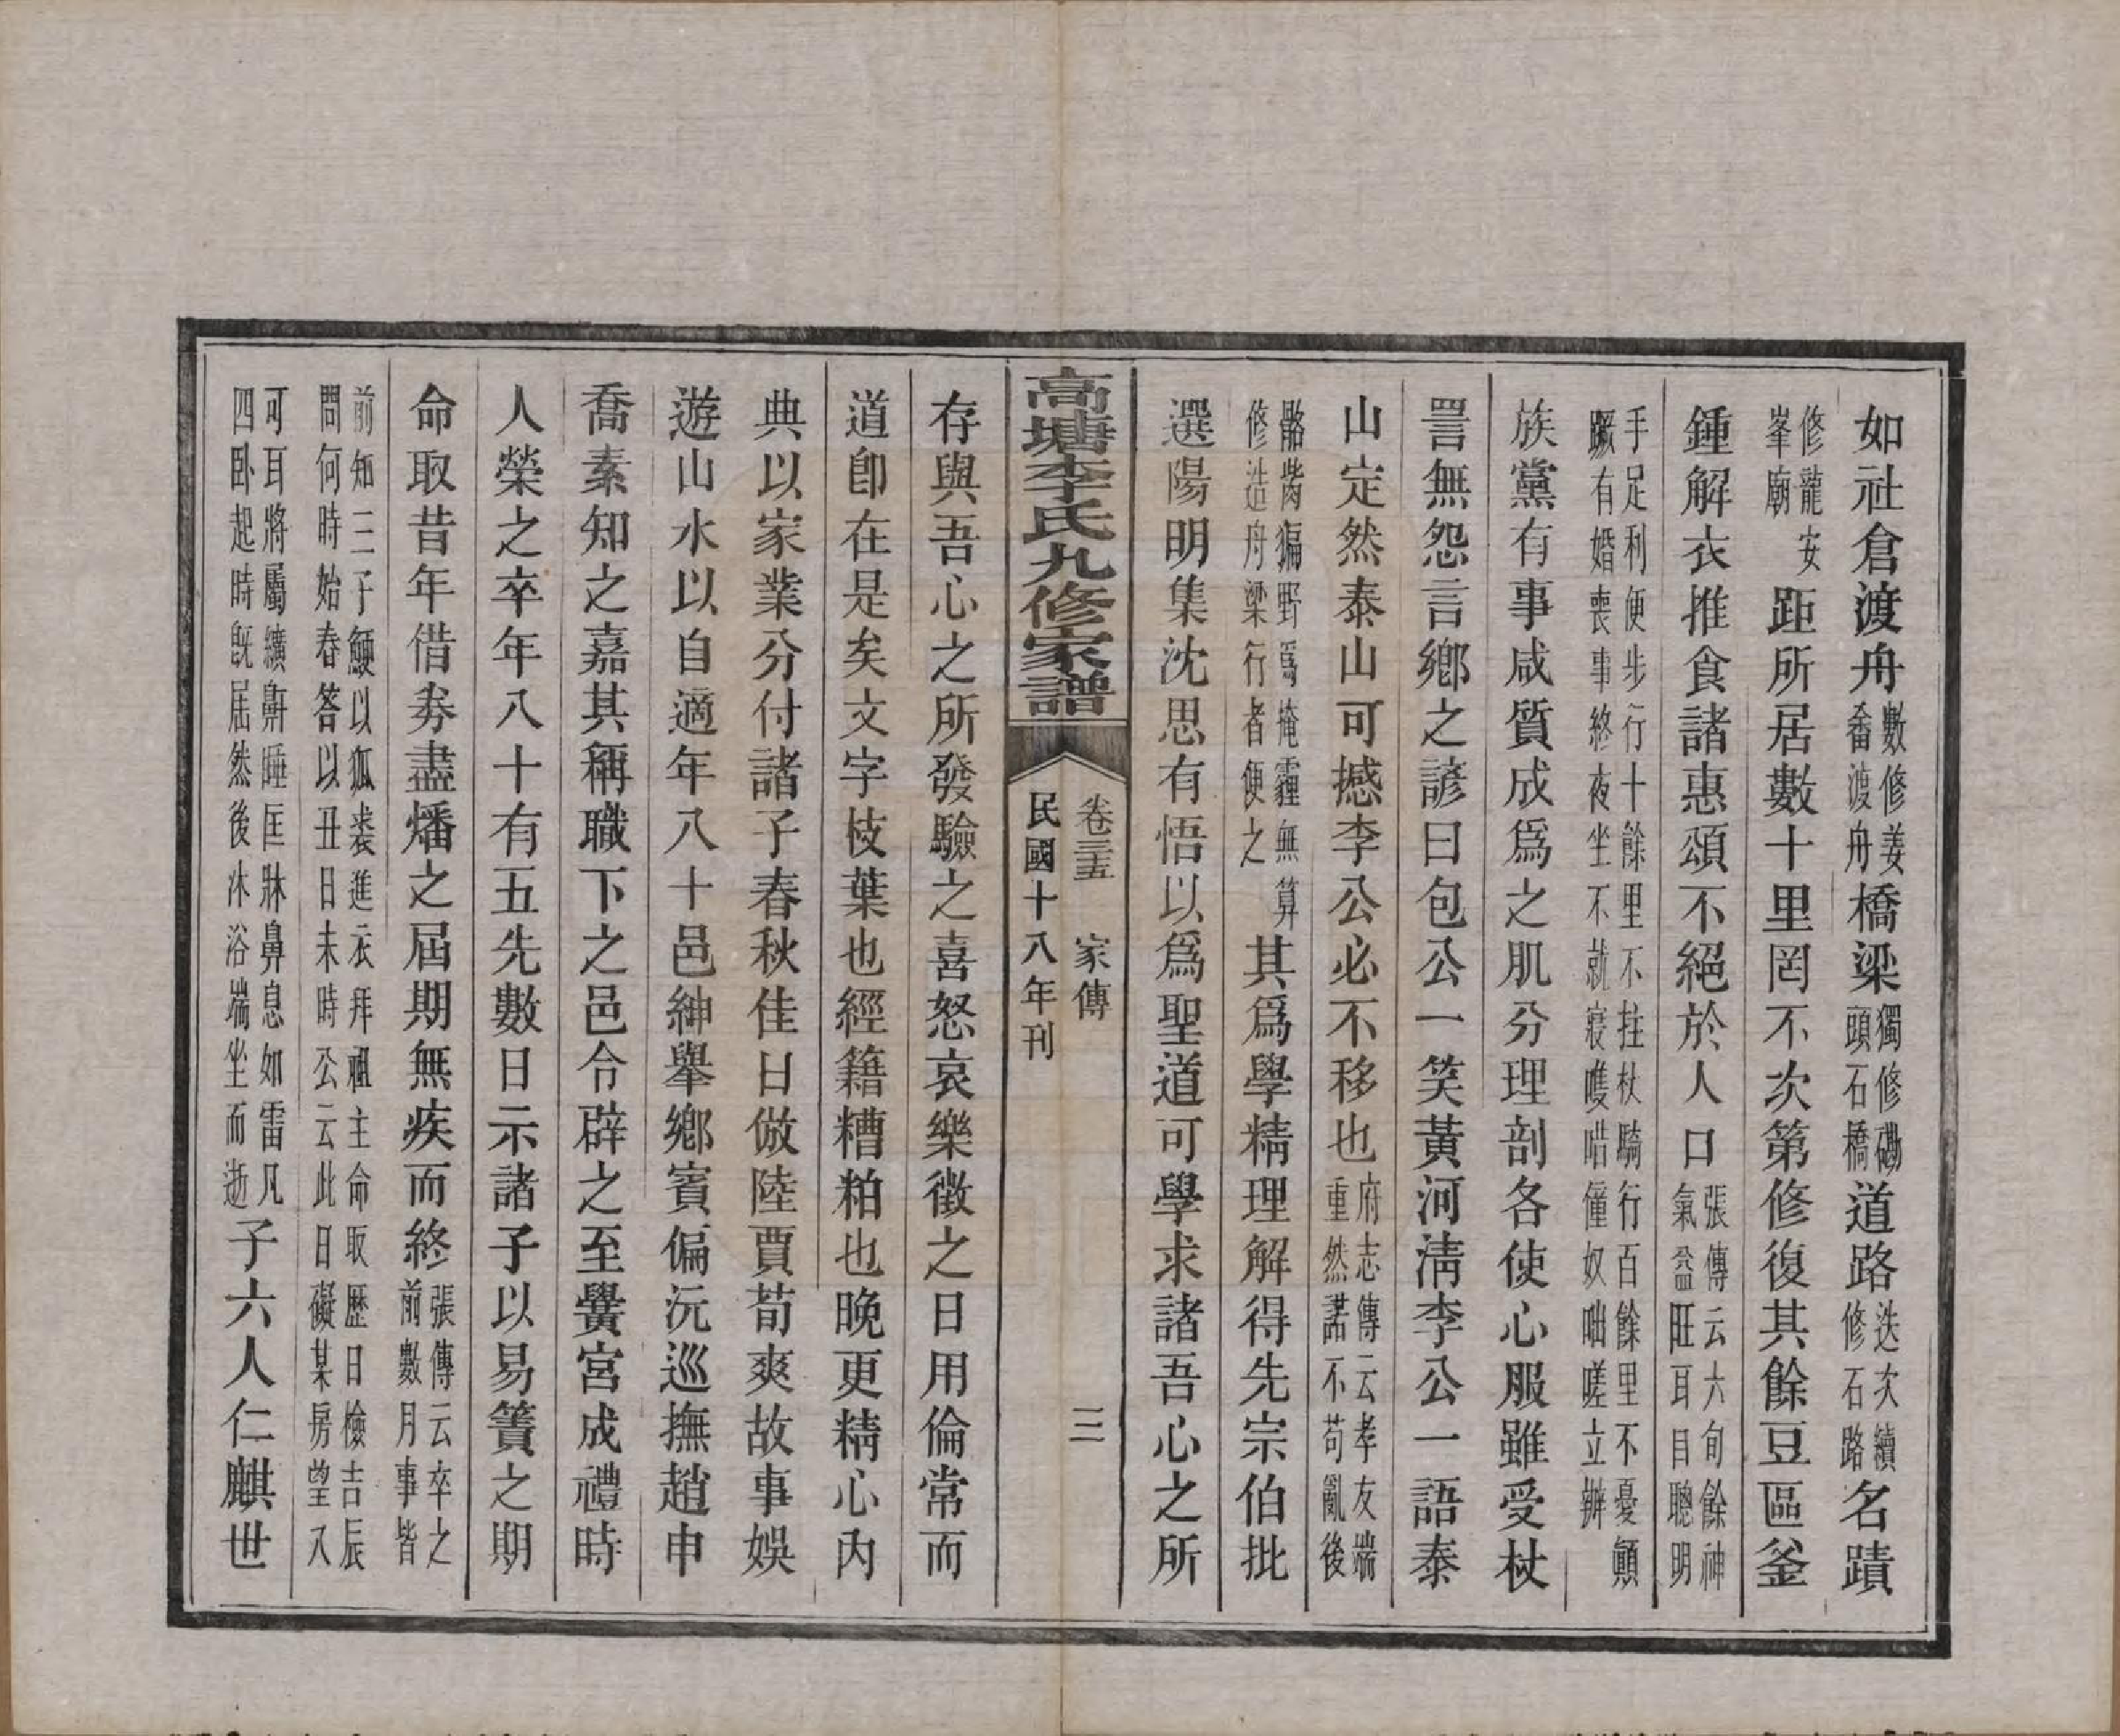 如社倉渡舟數修姜畬渡舟橋梁獨修磡頭石橋道路迭次續修石路名蹟
修龍安峯廟距所居數十里罔不次第修復其餘豆區釜
鍾解衣推食諸惠頌不絕於人口張傳云六旬餘神氣益旺耳目聰明
手足利便步行十餘里不拄杖騎行百餘里不憂顛蹶有婚喪事終夜坐不就寢嘆唶僮奴咄嗟立辦
族黨有事咸質成爲之肌分理剖各使心服雖受杖
詈無怨言鄉之諺曰包公一笑黃河淸李公一語泰
山定然泰山可撼李公必不移也府志傳云孝友端重然諾不苟亂後
骼胔徧野爲掩霾無算修造舟梁行者便之其爲學精理解得先宗伯批
選陽明集沈思有悟以爲聖道可學求諸吾心之所
高塘李氏九修家譜
卷三五　家傳　三
民國十八年刊
存與吾心之所發驗之喜怒哀樂徵之日用倫常而
道卽在是矣文字枝葉也經籍糟粕也晚更精心內
典以家業分付諸子春秋佳日倣陸賈荀爽故事娛
遊山水以自適年八十邑紳舉鄉賓偏沅巡撫趙申
喬素知之嘉其稱職下之邑令辟之至黌宮成禮時
人榮之卒年八十有五先數日示諸子以易簀之期
命取昔年借券盡燔之屆期無疾而終張傳云卒之前數月事皆
前知三子鯁以狐裘進衣拜祖主命取歷日檢吉辰問何時始春答以丑日未時公云此日礙某房望八
可耳將屬纊鼾睡匡牀鼻息如雷凡四卧起時旣屆然後沐浴端坐而逝子六人仁麒世